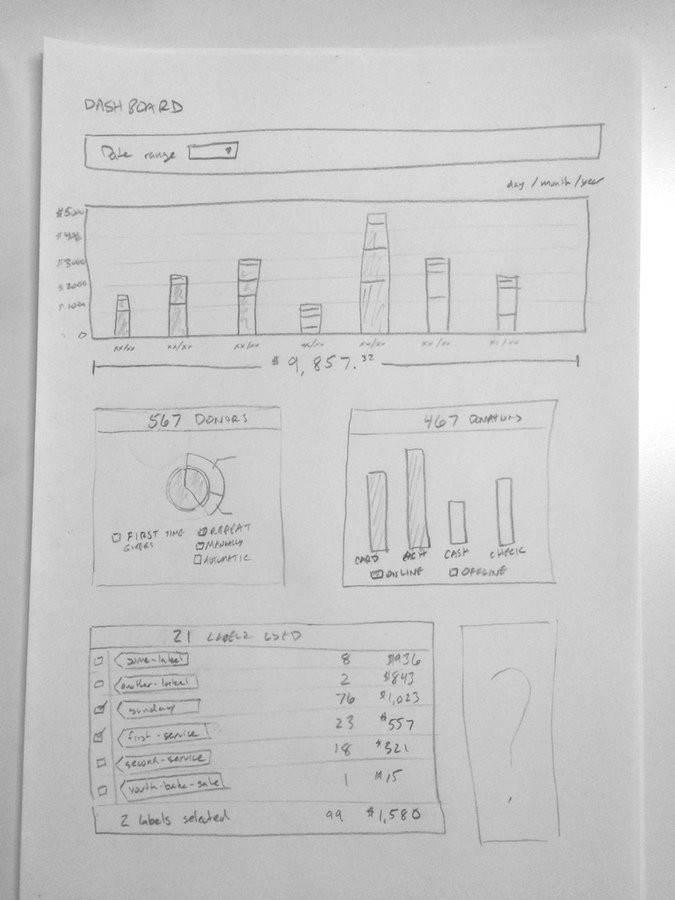 DASHBOARD
Date range
day / month / year
$5000
$4000
$3000
$2000
$1000
0
xx/xx xx/xx xx/xx xx/xx xx/xx xx/xx xx/xx
$9,857.32
567 DONORS
FIRST TIME GIVERS
REPEAT
MANUALLY
AUTOMATIC
467 DONATIONS
CARD ACH CASH CHECK
ONLINE OFFLINE
21 LABELS USED
some-label 8 $936
another-label 2 $843
sunday 76 $1,023
first-service 23 $557
second-service 18 $321
youth-bake-sale 1 $15
2 labels selected 99 $1,580
?